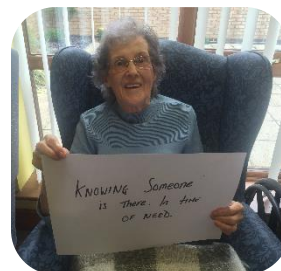 KNOWING SOMEONE
is THERE. In time
OF NEED.